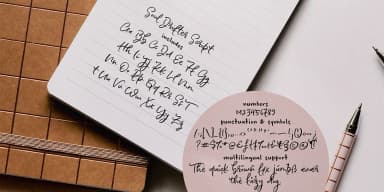 Soul Drifter Script
includes
Aa Bb Cc Dd Ee Ff Gg
Hh Ii Jj Kk Ll Mm
Nn Oo Pp Qq Rr Ss Tt
Uu Vv Ww
Xx Yy Zz
numbers
0123456789
punctuation & symbols
multilingual support
The quick brown fox jumps over
the lazy dog